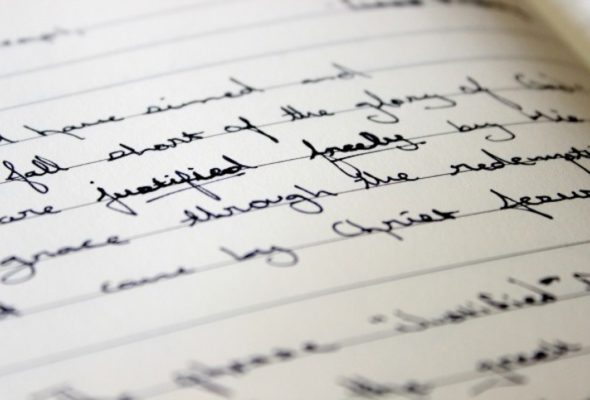 have sinned and
fall short of the glory of God
are justified freely by his
grace through the redempti
came by Christ Jesus
The phrase "justified"
the great